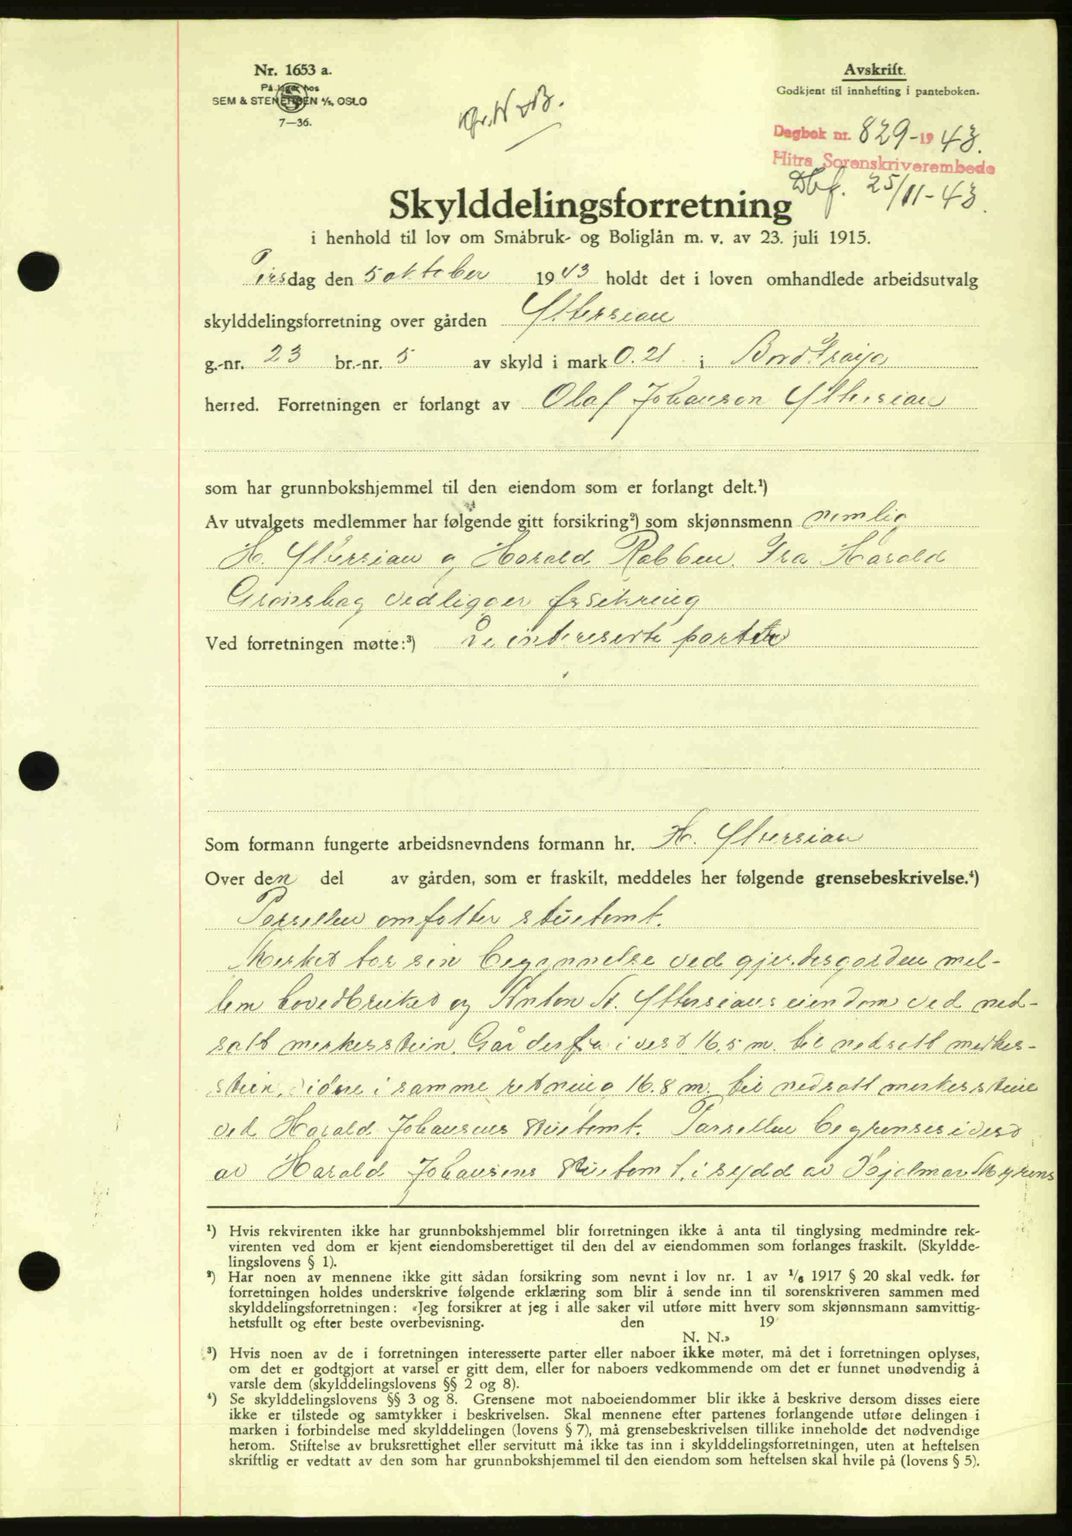 Nr. 1653 a.
På lager hos
SEM & STENERSEN A/S, OSLO
7—36.
Avskrift.
Godkjent til innhefting i panteboken.
Dagbok nr. 829-1943.
Hitra Sorenskriverembede
Dbf. 25/11-43.
Skylddelingsforretning
i henhold til lov om Småbruk- og Boliglån m. v. av 23. juli 1915.
Tirsdag den 5 oktober 1943 holdt det i loven omhandlede arbeidsutvalg
skylddelingsforretning over gården Yttersian
g.-nr. 23 br.-nr. 5 av skyld i mark 0.21 i Nord Frøya
herred. Forretningen er forlangt av Olaf Johanson Yttersian
som har grunnbokshjemmel til den eiendom som er forlangt delt.¹)
Av utvalgets medlemmer har følgende gitt forsikring²) som skjønnsmenn nemlig
H. Yttersian og Harald Rabben. Fra Harald
Grønskag vedligger forsikring
Ved forretningen møtte:³) De intereserte parter
Som formann fungerte arbeidsnevndens formann hr. H. Yttersian
Over den del av gården, som er fraskilt, meddeles her følgende grensebeskrivelse.⁴)
Parsellen omfatter stuetomt.
Merket tar sin begynnelse ved gjerdesgarden mel-
lem hovedbruket og Anton St. Yttersians eiendom ved ned-
satt merkesstein. Går derfra i vest 16,5 m. til nedsatt merkes-
stein, videre i samme retning 16.8 m. til nedsatt merkessteine
ved Harald Johansens stuetomt. Parsellen begrenses i vest
av Harald Johansens stuetomt, i sydd av Hjelmar Myrens
¹) Hvis rekvirenten ikke har grunnbokshjemmel blir forretningen ikke å anta til tinglysing medmindre rek-
virenten ved dom er kjent eiendomsberettiget til den del av eiendommen som forlanges fraskilt. (Skyldde-
lingslovens § 1).
²) Har noen av mennene ikke gitt sådan forsikring som nevnt i lov nr. 1 av 1/6 1917 § 20 skal vedk. før
forretningen holdes underskrive følgende erklæring som blir å sende inn til sorenskriveren sammen med
skylddelingsforretningen: «Jeg forsikrer at jeg i alle saker vil utføre mitt hverv som skjønnsmann samvittig-
hetsfullt og efter beste overbevisning. den 19
N. N.»
³) Hvis noen av de i forretningen interesserte parter eller naboer ikke møter, må det i forretningen oplyses,
om det er godtgjort at varsel er gitt dem, eller for naboers vedkommende om det er funnet unødvendig å
varsle dem (skylddelingslovens §§ 2 og 8).
⁴) Se skylddelingslovens §§ 3 og 8. Grensene mot naboeiendommer blir ikke å beskrive dersom disses eiere
ikke er tilstede og samtykker i beskrivelsen. Skal mennene efter partenes forlangende utføre delingen i
marken i forbindelse med skylddelingen (lovens § 7), må grensebeskrivelsen tillike inneholde det nødvendige
herom. Stiftelse av bruksrettighet eller servitutt må ikke tas inn i skylddelingsforretningen, uten at heftelsen
skriftlig er vedtatt av den som har grunnbokshjemmel til den eiendom som heftelsen skal hvile på (lovens § 5).